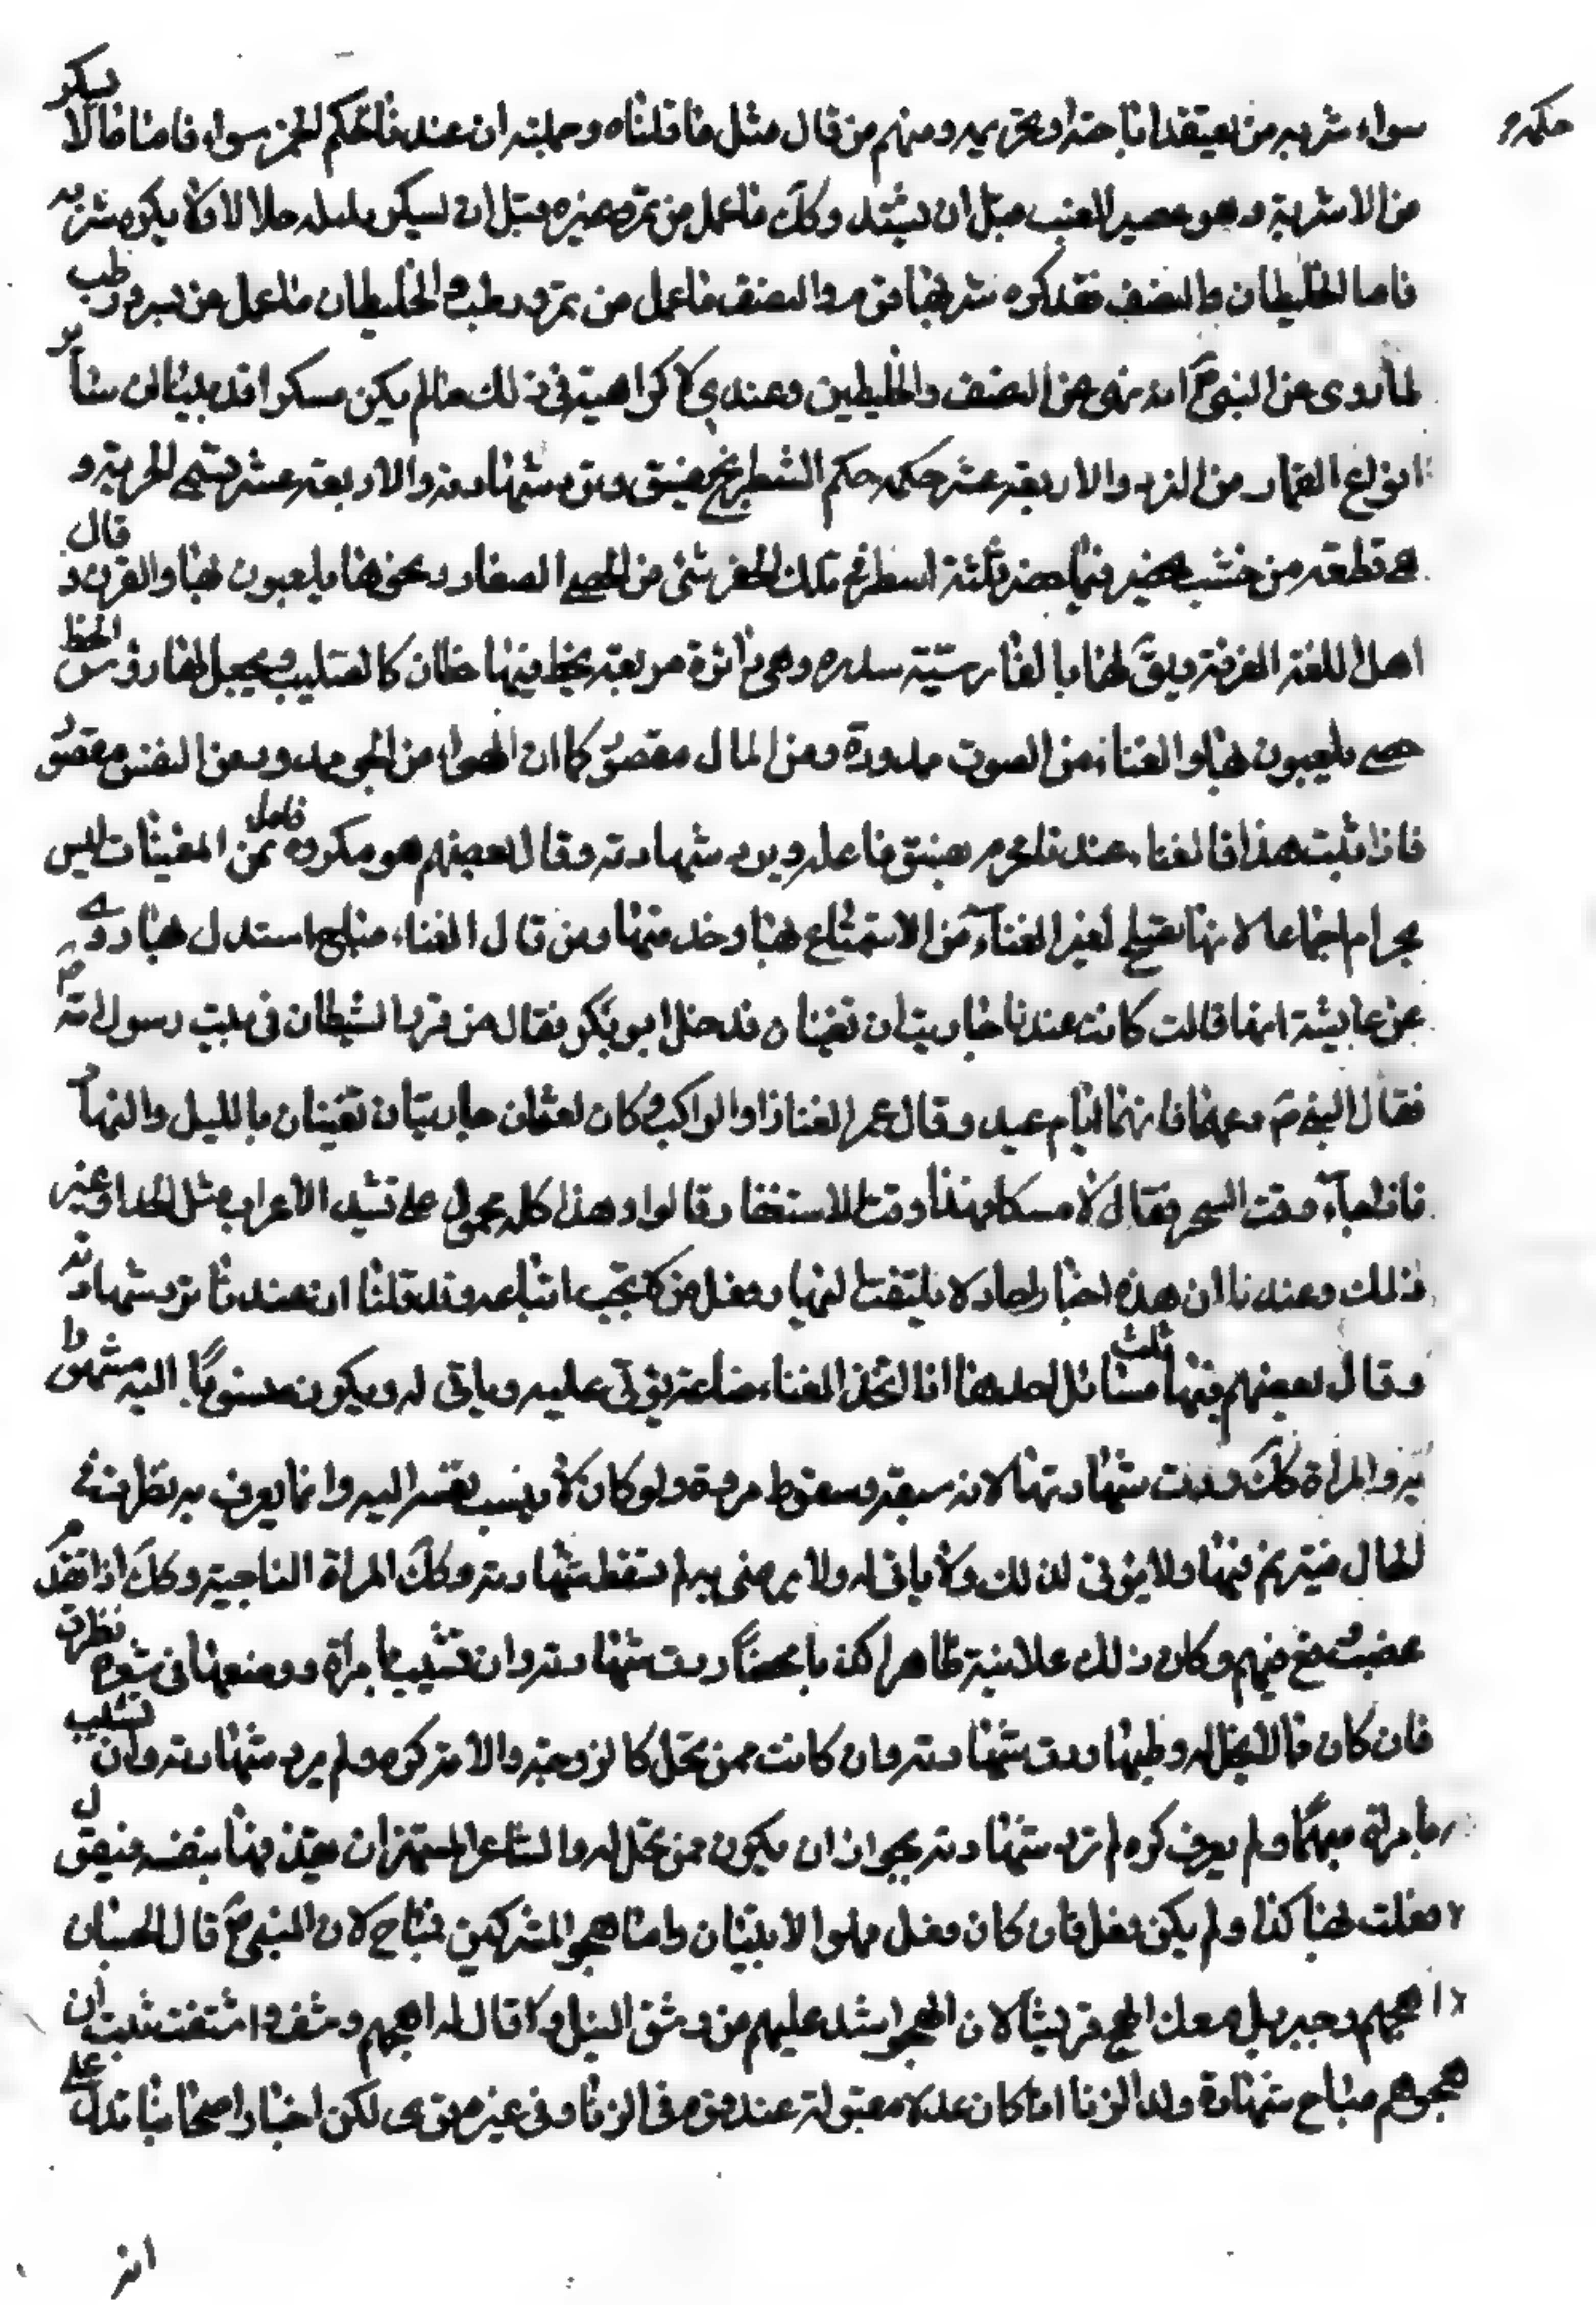 حكمه و
سواء شربه من يعتقد اباحته او تحريمه ومنهم من قال مثل ما قلناه وجملته ان عندنا حكم الخمر سواء فاما ما لا يسكر
من الاشربة وهو عصير العنب قبل ان يشتد وكك ما عمل من تمر وغيره قبل ان يسكر حلال لا يكره شربه
فاما الخليطان والنصف فقد كره شربهما قوم والنصف ما عمل من تمر ورطب والخليطان ما عمل من بسر ورطب
لما روى عن النبي ص انه نهى عن النصف والخليطين وعندي لا كراهية في ذلك ما لم يكن مسكرا قد بينا ان سائر
انواع القمار من النرد والاربعة عشر حكمه حكم الشطرنج يفسق وترد شهادته والاربعة عشر يسمى الحزة و
هي قطعة من خشب يحفر فيها حفر ثلثة اسطر في تلك الحفر شئ من الحصى الصغار ونحوها يلعبون بها والقرق قال
اهل اللغة القرقة ويق لها بالفارسية سدره وهي دائرة مربعة يخط فيها خطان كالصليب ويجعل لها رؤس الخط
حصى يلعبون بها والغناء من الصوت ممدود ومن المال مقصور كما ان الهواء من الجو ممدود ومن النفس مقصور
فاذا ثبت هذا فالغناء عندنا محرم يفسق فاعله ويرد شهادته وقال بعضهم هو مكروه فاما ثمن المغنيات ليس
بحرام اجماعا لانها تصلح لغير الغناء من الاستمتاع بها وخدمتها ومن قال الغناء مباح استدل بما روى
عن عايشة انها قالت كانت عندنا جاريتان تغنيان فدخل ابو بكر فقال مزمور الشيطان في بيت رسول الله ص
فقال النبي ص دعهما فانها ايام عيد وقال عمر الغنا زاد الراكب وكان لعثمان جاريتان تغنيان بالليل والنهار
فاذا جاء وقت السحر فقال لا مسكا فهذا وقت الاستغفار قالوا وهذا كله محمول على نشيد الاعراب مثل الحدا وغير
ذلك وعندنا ان هذه اخبار احاد لا يلتفت اليها وفعل من لا يجب اتباعه وقد قلنا ان عندنا ترد شهادته
وقال بعضهم فيها ثلث مسائل احدها اذا اتخذ الغناء صناعة يؤتى عليه وياتى له ويكون منسوبا اليه مشهورا
به والمراة كك ردت شهادتها لانه سفه وسقوط مروة ولو كان لا ينسب نفسه اليه وانما يعرف به يطرب في
الحال فيترنم فيها ولا يؤتى لذلك ولا ياتى له ولا يرضى به لم تسقط شهادته وكك المراة
فان كان ممن لا يحل له وطيها ردت شهادته وان كانت ممن تحل كالزوجة والامة كره ولم يرد شهادته وان تشبب
بامراة مبهما ولم يعرف كره لم ترد شهادته بجواز ان يكون ممن تحل له
فعلت بها كذا ولم يكن فعل فان كان فعل واما هجو المشركين فمباح لان النبي ص قال لحسان
اهجهم وجبريل معك اهج قريشا لان الهجو اشد عليهم من رشق النبل وكما قال له اهجهم وشف واشتفت ثبت ان
هجوهم مباح شهادة ولد الزنا اذا كان عدلا مقبولة عند قوم في الزنا وفي غيره قوى لكن اخبار اصحابنا تدل على
انه